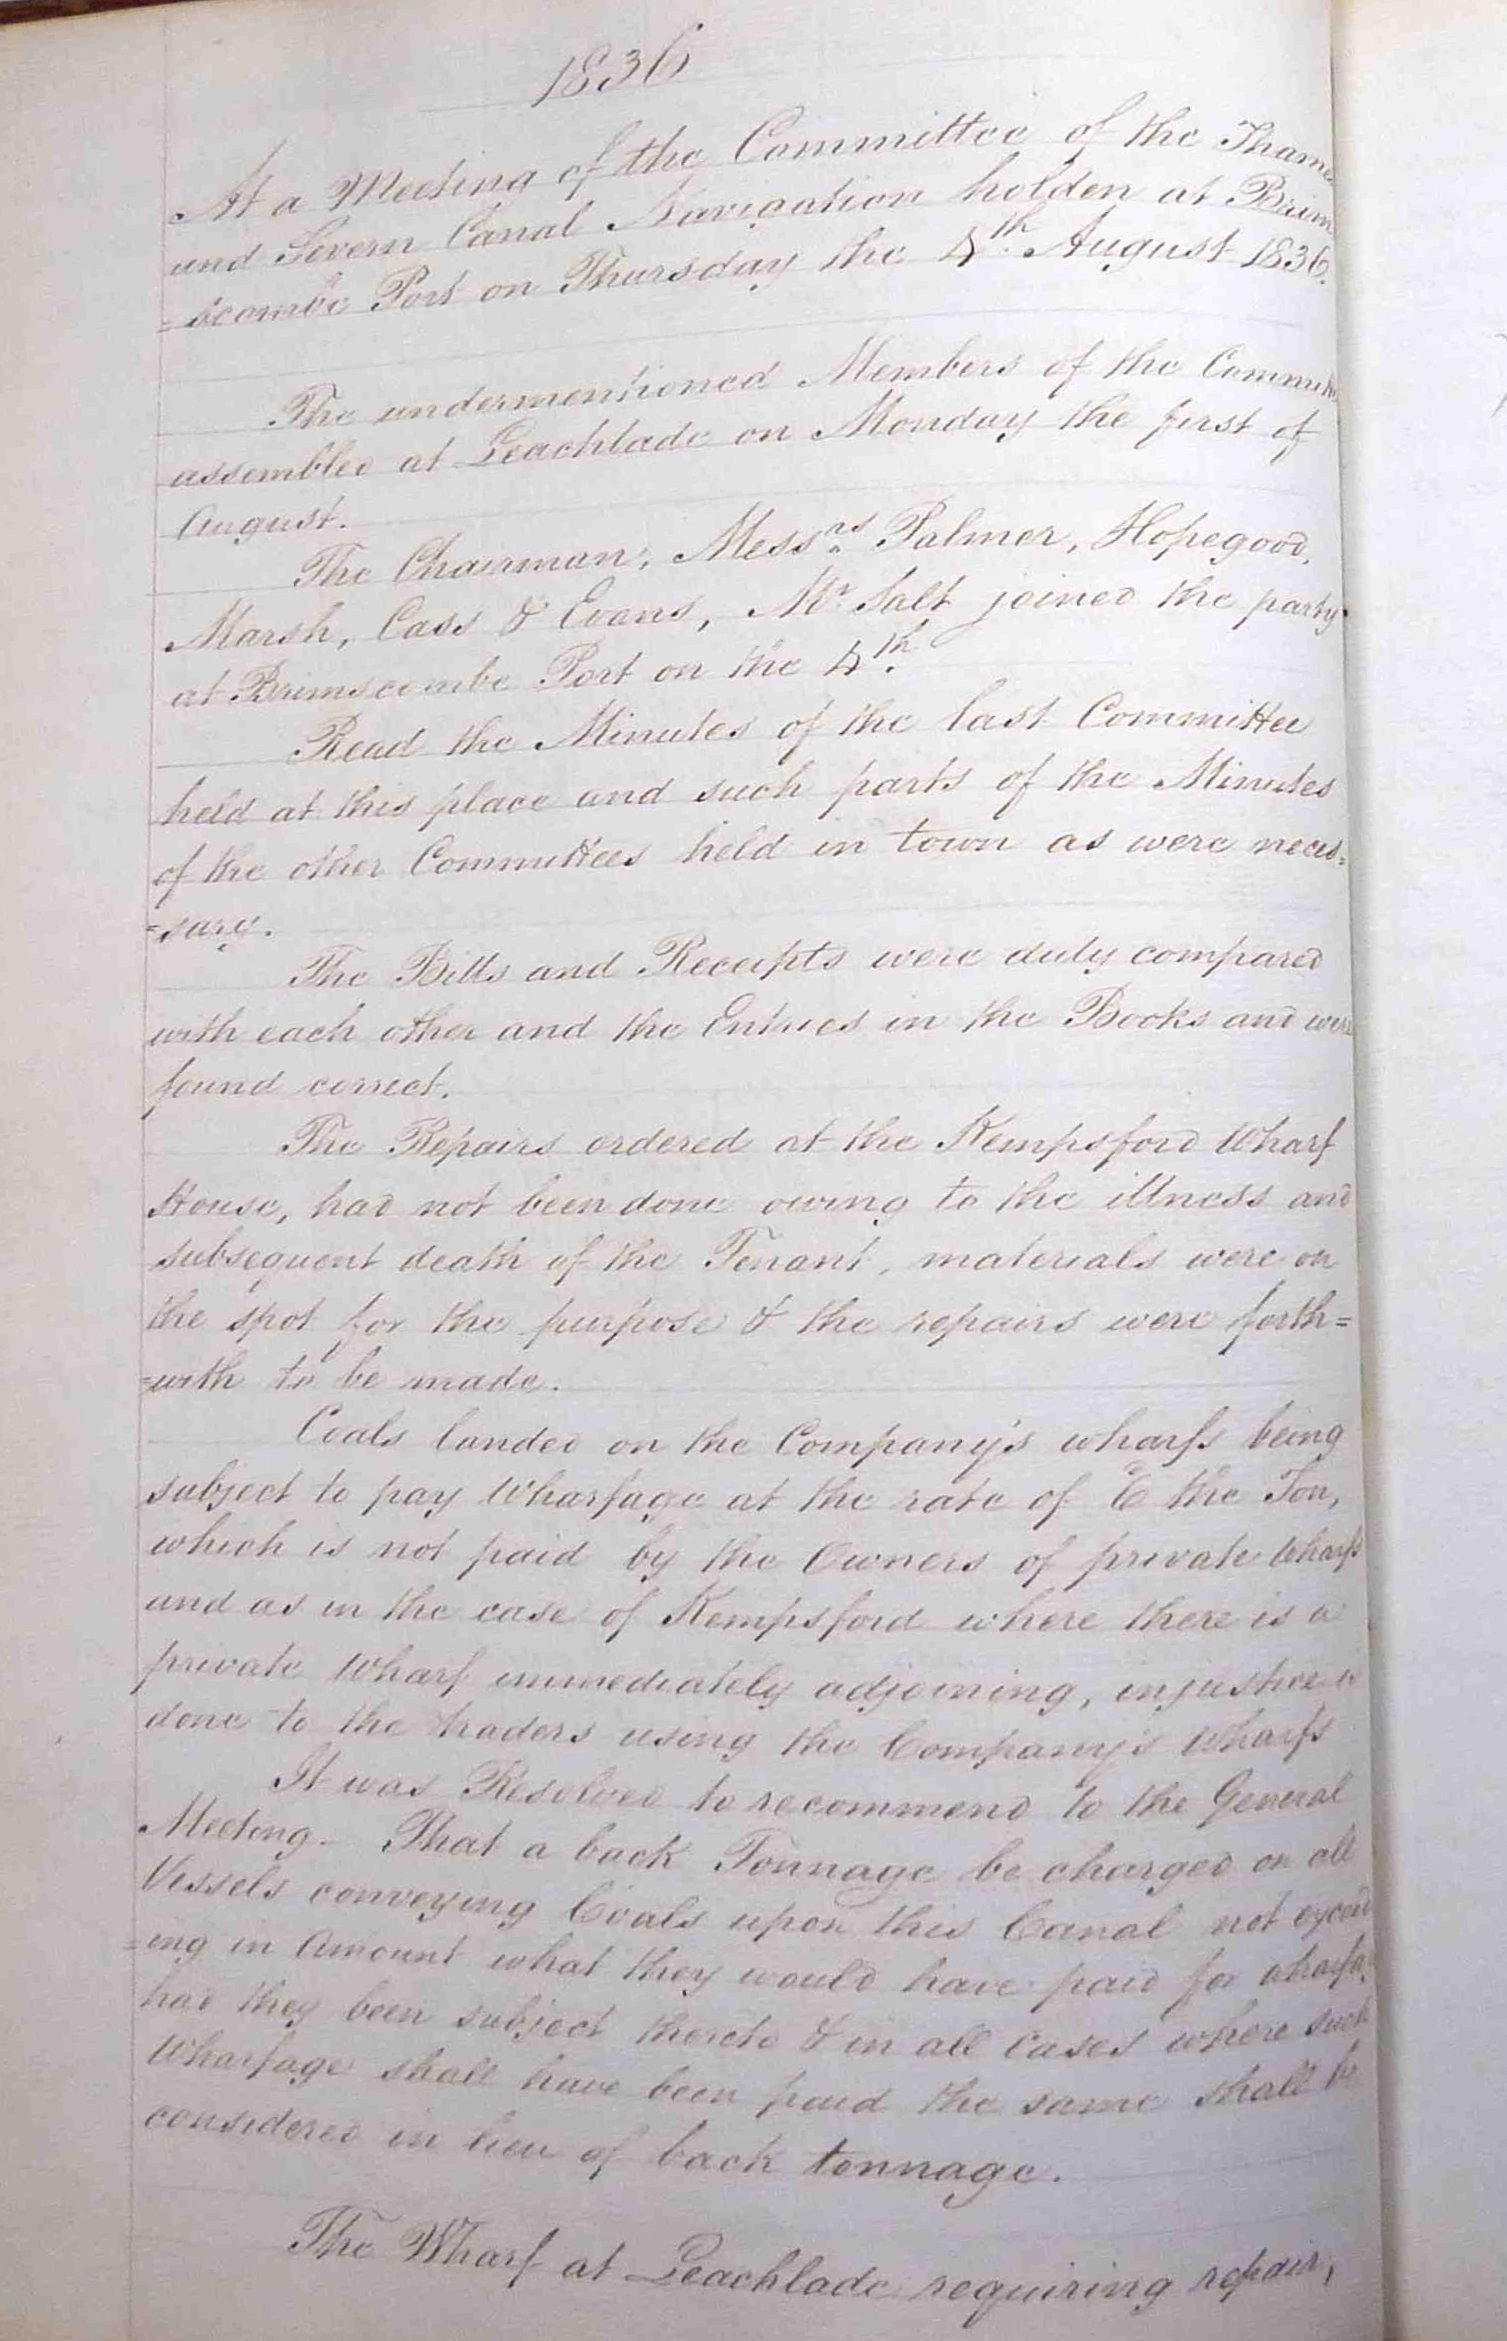 1836
At a Meeting of the Committee of the Thames
and Severn Canal Navigation holden at Brim
=scombe Port on Thursday the 4th August 1836.
The undermentioned Members of the Committee
assembled at Leachlade on Monday the first of
August.
The Chairman, Messrs Palmer, Hopegood,
Marsh, Cass & Evans, Mr Salt joined the party
at Brimscombe Port on the 4th.
Read the Minutes of the last Committee
held at this place and such parts of the Minutes
of the other Committees held in town as were neces=
=sary.
The Bills and Receipts were duly compared
with each other and the Entries in the Books and were
found correct.
The Repairs ordered at the Kempsford Wharf
House, had not been done owing to the illness and
subsequent death of the Tenant, materials were on
the spot for the purpose & the repairs were forth=
=with to be made.
Coals landed on the Company's wharfs being
subject to pay Wharfage at the rate of the Ton,
which is not paid by the Owners of private Wharfs
and as in the case of Kempsford where there is a
private Wharf immediately adjoining, injustice is
done to the traders using the Company's Wharfs
It was Resolved to recommend to the General
Meeting. That a back Tonnage be charged on all
Vessels conveying Coals upon this Canal not exceed
=ing in Amount what they would have paid for wharfage
had they been subject thereto & in all cases where such
Wharfage shall have been paid the same shall be
considered in lieu of back tonnage.
The Wharf at Leachlade requiring repair,